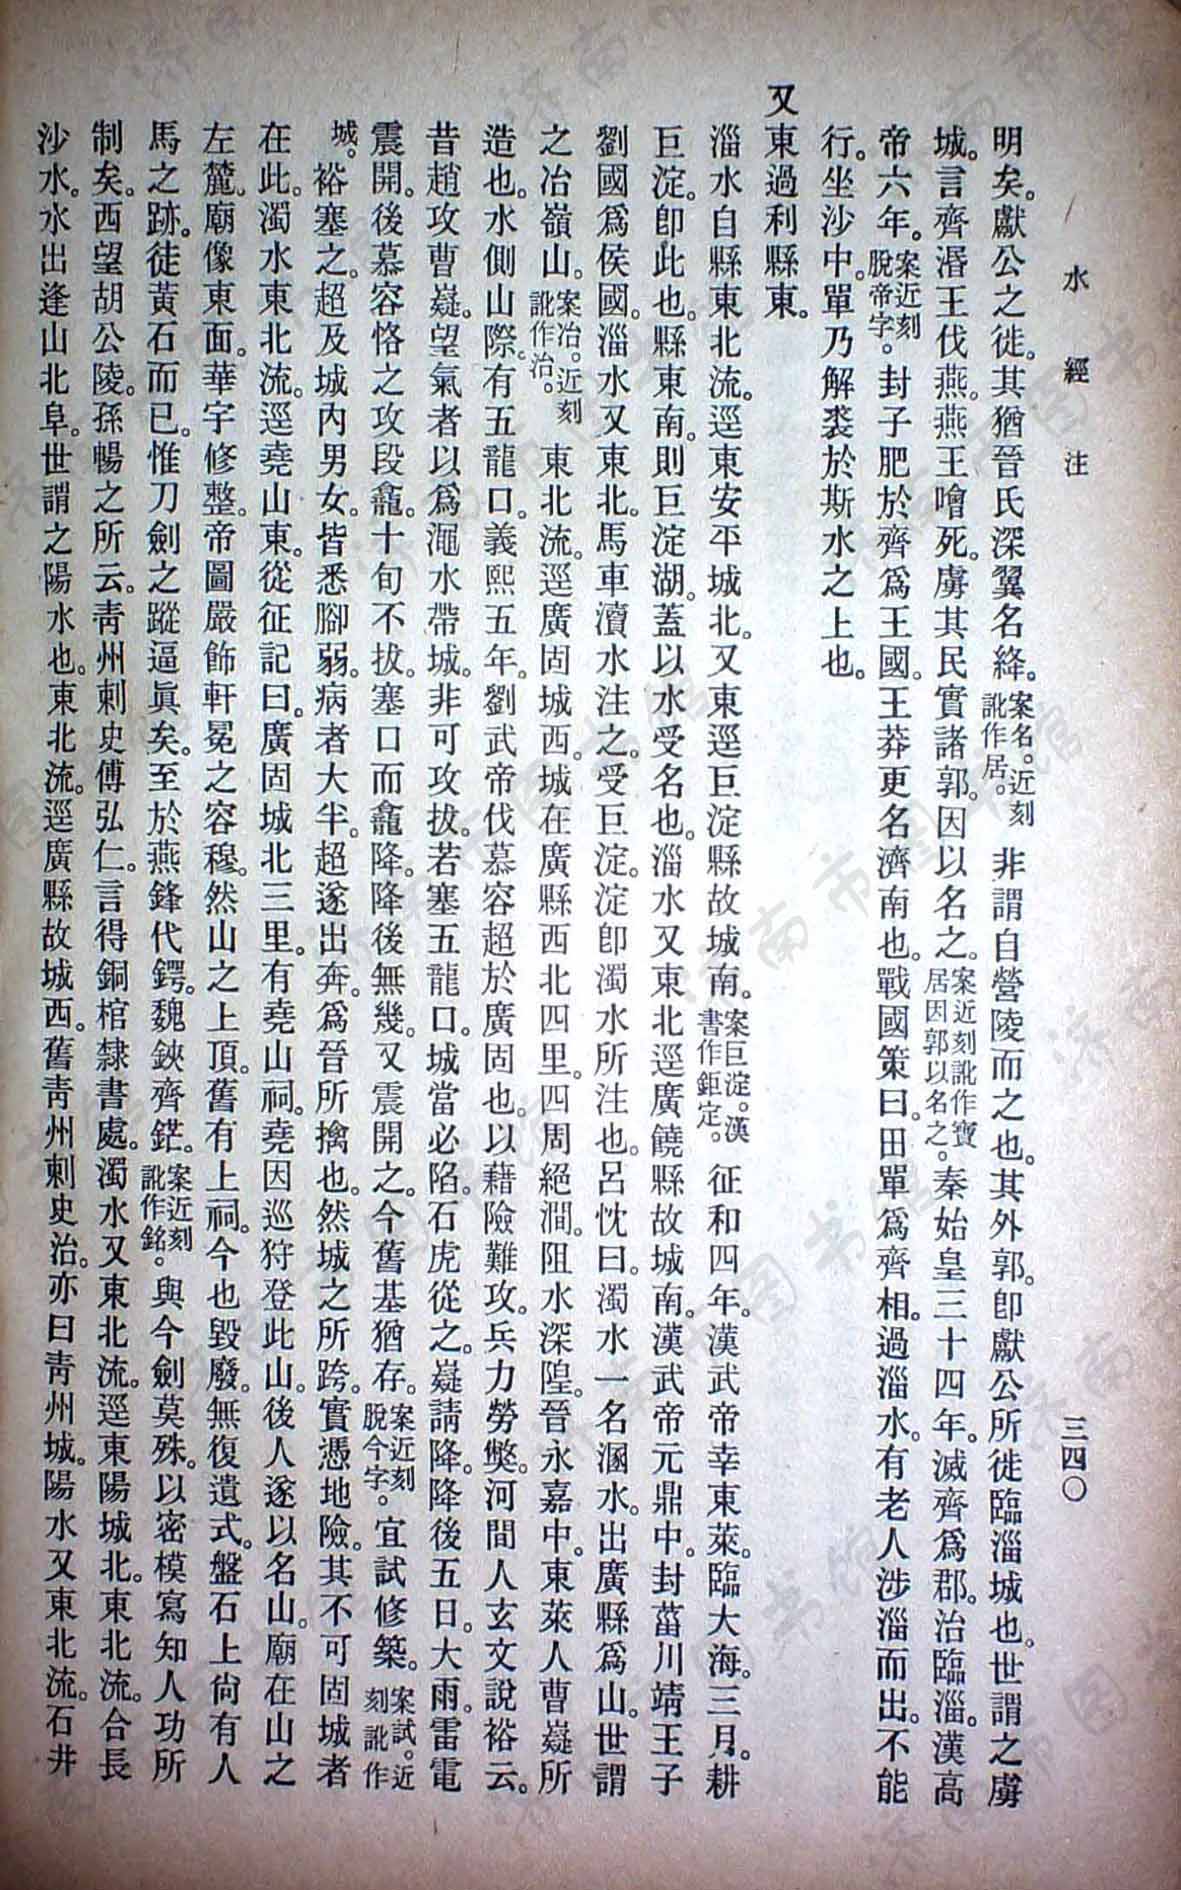 水經注
三四〇
明矣。獻公之徙。其猶晉氏深翼名絳。案名。近刻訛作居。非謂自營陵而之也。其外郭。卽獻公所徙臨淄城也。世謂之虜
城。言齊湣王伐燕。燕王噲死。虜其民實諸郭。因以名之。案近刻訛作寶居因郭以名之。秦始皇三十四年。滅齊爲郡。治臨淄。漢高
帝六年。案近刻脫帝字。封子肥於齊爲王國。王莽更名濟南也。戰國策曰。田單爲齊相。過淄水。有老人涉淄而出。不能
行。坐沙中。單乃解裘於斯水之上也。
又東過利縣東。
淄水自縣東北流。逕東安平城北。又東逕巨淀縣故城南。案巨淀。漢書作鉅定。征和四年。漢武帝幸東萊。臨大海。三月。耕
巨淀。卽此也。縣東南。則巨淀湖。蓋以水受名也。淄水又東北逕廣饒縣故城南。漢武帝元鼎中。封菑川靖王子
劉國爲侯國。淄水又東北。馬車瀆水注之。受巨淀。淀卽濁水所注也。呂忱曰。濁水一名溷水。出廣縣爲山。世謂
之冶嶺山。案冶。近刻訛作治。東北流。逕廣固城西。城在廣縣西北四里。四周絕澗。阻水深隍。晉永嘉中。東萊人曹嶷所
造也。水側山際。有五龍口。義熙五年。劉武帝伐慕容超於廣固也。以藉險難攻。兵力勞獘。河間人玄文說裕云。
昔趙攻曹嶷。望氣者以爲澠水帶城。非可攻拔。若塞五龍口。城當必陷。石虎從之。嶷請降。降後五日。大雨。雷電
震開。後慕容恪之攻段龕。十旬不拔。塞口而龕降。降後無幾。又震開之。今舊基猶存。案近刻脫今字。宜試修築。案試。近刻訛作
城。裕塞之。超及城內男女。皆悉腳弱。病者大半。超遂出奔。爲晉所擒也。然城之所跨。實憑地險。其不可固城者
在此。濁水東北流。逕堯山東。從征記曰。廣固城北三里。有堯山祠。堯因巡狩登此山。後人遂以名山。廟在山之
左麓。廟像東面。華宇修整。帝圖嚴飾軒冕之容穆。然山之上頂。舊有上祠。今也毀廢。無復遺式。盤石上尙有人
馬之跡。徒黃石而已。惟刀劍之蹤逼眞矣。至於燕鋒代鍔。魏鋏齊鋩。案近刻訛作銘。與今劍莫殊。以密模寫知人功所
制矣。西望胡公陵。孫暢之所云。靑州刺史傅弘仁。言得銅棺隸書處。濁水又東北流。逕東陽城北。東北流。合長
沙水。水出逢山北阜。世謂之陽水也。東北流。逕廣縣故城西。舊靑州刺史治。亦曰靑州城。陽水又東北流。石井